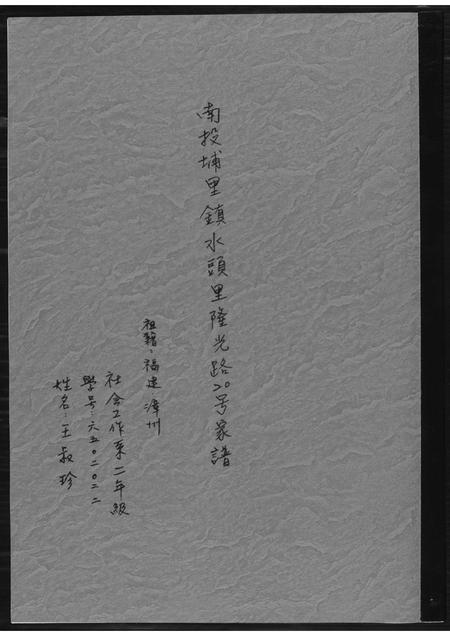 南投埔里鎮水頭里隆光路20号家譜
祖籍：福建漳州
社会工作系二年級
學号：六五〇二〇二二
姓名：王叔珍